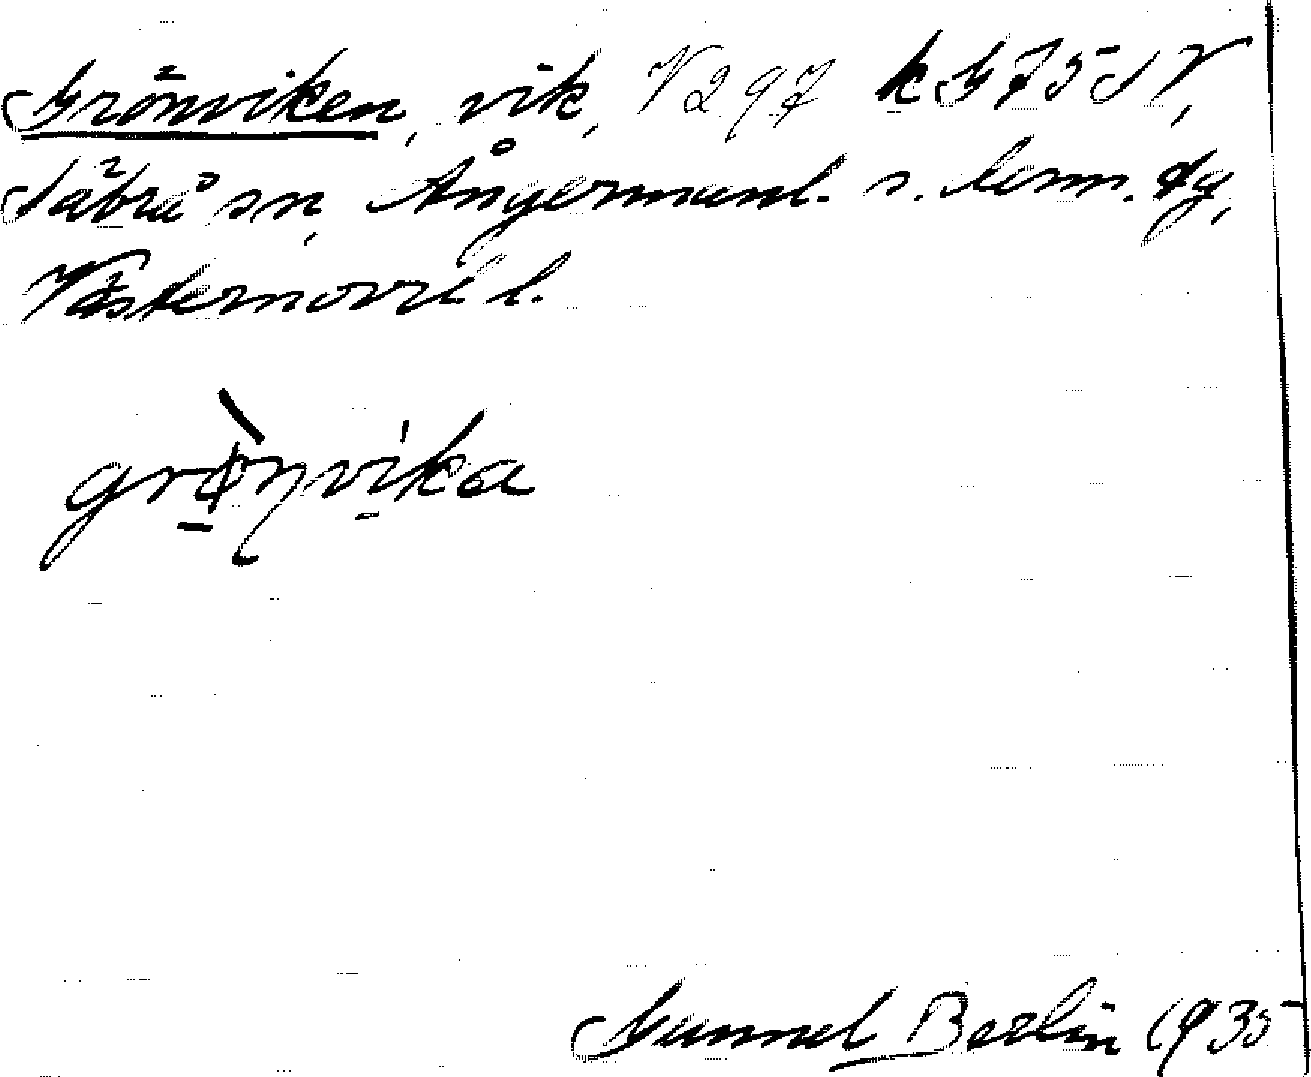 Grönviken, vik, V297 k G75 SV,
Säbrå sn, Ångermanl. s. kom. dg,
Västernorrl l.
grønvika
Gunnel Berlin 1935